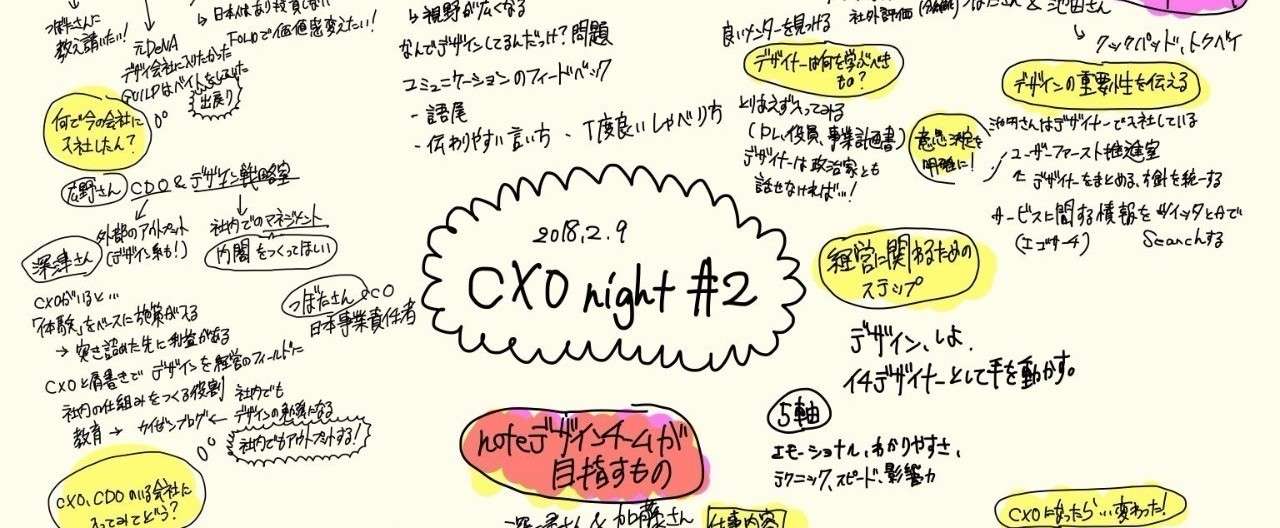 つぼたさんに
教え請いたい!
元DeNA
デザイン会社に入りたかった
GUILDはバイトをしていた
出戻り
→ 日本はあまり投資しない
FOLIOで価値感変えたい!
何で今の会社に
入社したん?
広野さん
CDO & デザイン戦略室
外部のアウトプット
(デザイン系も!)
社内でのマネジメント
内閣をつくってほしい
深津さん
CXOがいると…
「体験」をベースに施策が打てる
→ 突き詰めた先に利益がある
CXOと肩書きでデザインを経営のフィールドに
社内の仕組みをつくる役割
教育 → カイゼンブログ ←
社内でも
デザインの勉強になる
社内でもアウトプットする!
つぼたさん CCO
日本事業責任者
CXO、CDOのいる会社に
入ってみてどう?
→ 視野が広くなる
なんでデザインしてるんだっけ?問題
コミュニケーションのフィードバック
- 語尾
- 伝わりやすい言い方、丁度良いしゃべり方
2018.2.9
CXO night #2
noteデザインチームが
目指すもの
深津さん & 加藤さん
仕事内容
良いメンターを見つける
社外評価
デザイナーは何を学ぶべき
もの?
とりあえず入ってみる
(PL、役員、事業計画書)
デザイナーは政治家とも
話せなければ…!
& 池田さん
↳ クックパッド、トクバイ
デザインの重要性を伝える
意思決定を
明確に!
池田さんはデザイナーで入社している
ユーザーファースト推進室
← デザイナーをまとめる、方針を統一する
サービスに関する情報をツイッタとかで
(エゴサーチ) Searchする
経営に関わるための
ステップ
デザイン、しよ。
イチデザイナーとして手を動かす。
5軸
エモーショナル、わかりやすさ、
テクニック、スピード、影響力
CXOになったらい変わった!